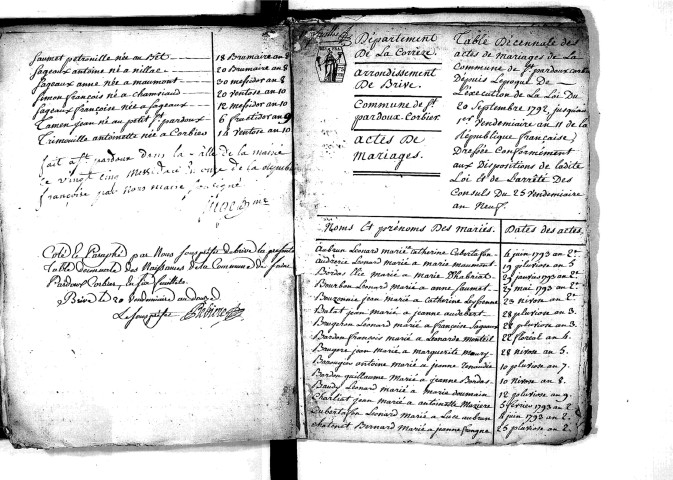 Saumet petronille née au Bët 18 Brumaire an 8
Sageaux antoine né a nillac 20 Brumaire an 8
Sageaux anne née a maumont 30 messidor an 8
Simon françois né a chamsiaud 20 Ventose an 10
Sageaux françoise née a Sageaux 12 messidor an 10
Tamen jean né au petit St pardoux 6 fructidor an 9
Trimouille antoinette née a Corbier 14 Ventose an 10
fait a St pardoux dans la salle de la mairie
le vingt cinq Messidor an onze de la republique
françoise par nous maire soussigné
Cotté et Paraphé par Nous Souspréfet de brive la presente
Table decennale des Naissances de la Commune de Saint
Pardoux Corbier, en six feuillets.
Brive le 20 vendemiaire an douze
Le souspréfet
Département
De La Corrèze.
arrondissement
De Brive.
Commune de St
pardoux Corbier.
actes De
Mariages.
Table Décennale des
actes de mariages de La
Commune de St pardoux Corbier
Depuis Lepoque De
L'execution de La Loi Du
20 Septembre 1792, jusquau
1er Vendemiaire an 11 de la
République française;
Dressée Conformément
aux Dispositions de ladite
Loi et de L'arrêté Des
Consuls Du 25 Vendemiaire
an Neuf.
Noms Et prénoms Des mariés. Dates des actes.
Aubrun Leonard marié a catherine Cubertafon 4 juin 1793 an 2e
audevie Leonard marié a marie maumont 19 pluviose an 5
Bordas Elie marié a marie Dhabriat 29 janvier 1793 an 2e
Bourbon Leonard marié a anne Saumet 27 mai 1793 an 2e
Bugenaie jean marié a catherine Leyssenne 23 nivose an 2e
Batat jean marié a jeanne audebert 28 pluviose an 3.
Brugeron Leonard marié a françoise Sageaux 28 pluviose an 3.
Bardon françois marié a Leonarde monteil 22 floréal an 4.
Baugere jean marié a marguerite moury 28 nivose an 5.
antoine marié a jeanne 10 pluviose an 7.
Bardon guillaume marié a jeanne Bordas 10 nivose an 8.
Baudy Leonard marié a marie doumain 12 pluviose an 9.
Charliat jean marié a antoinette Maziere 5 fevrier 1793 an 2
Cubertafon Leonard marié a Luce aubrun 4 juin 1793 an 2
chatenet Bernard marié a jeanne 25 pluviose an 2